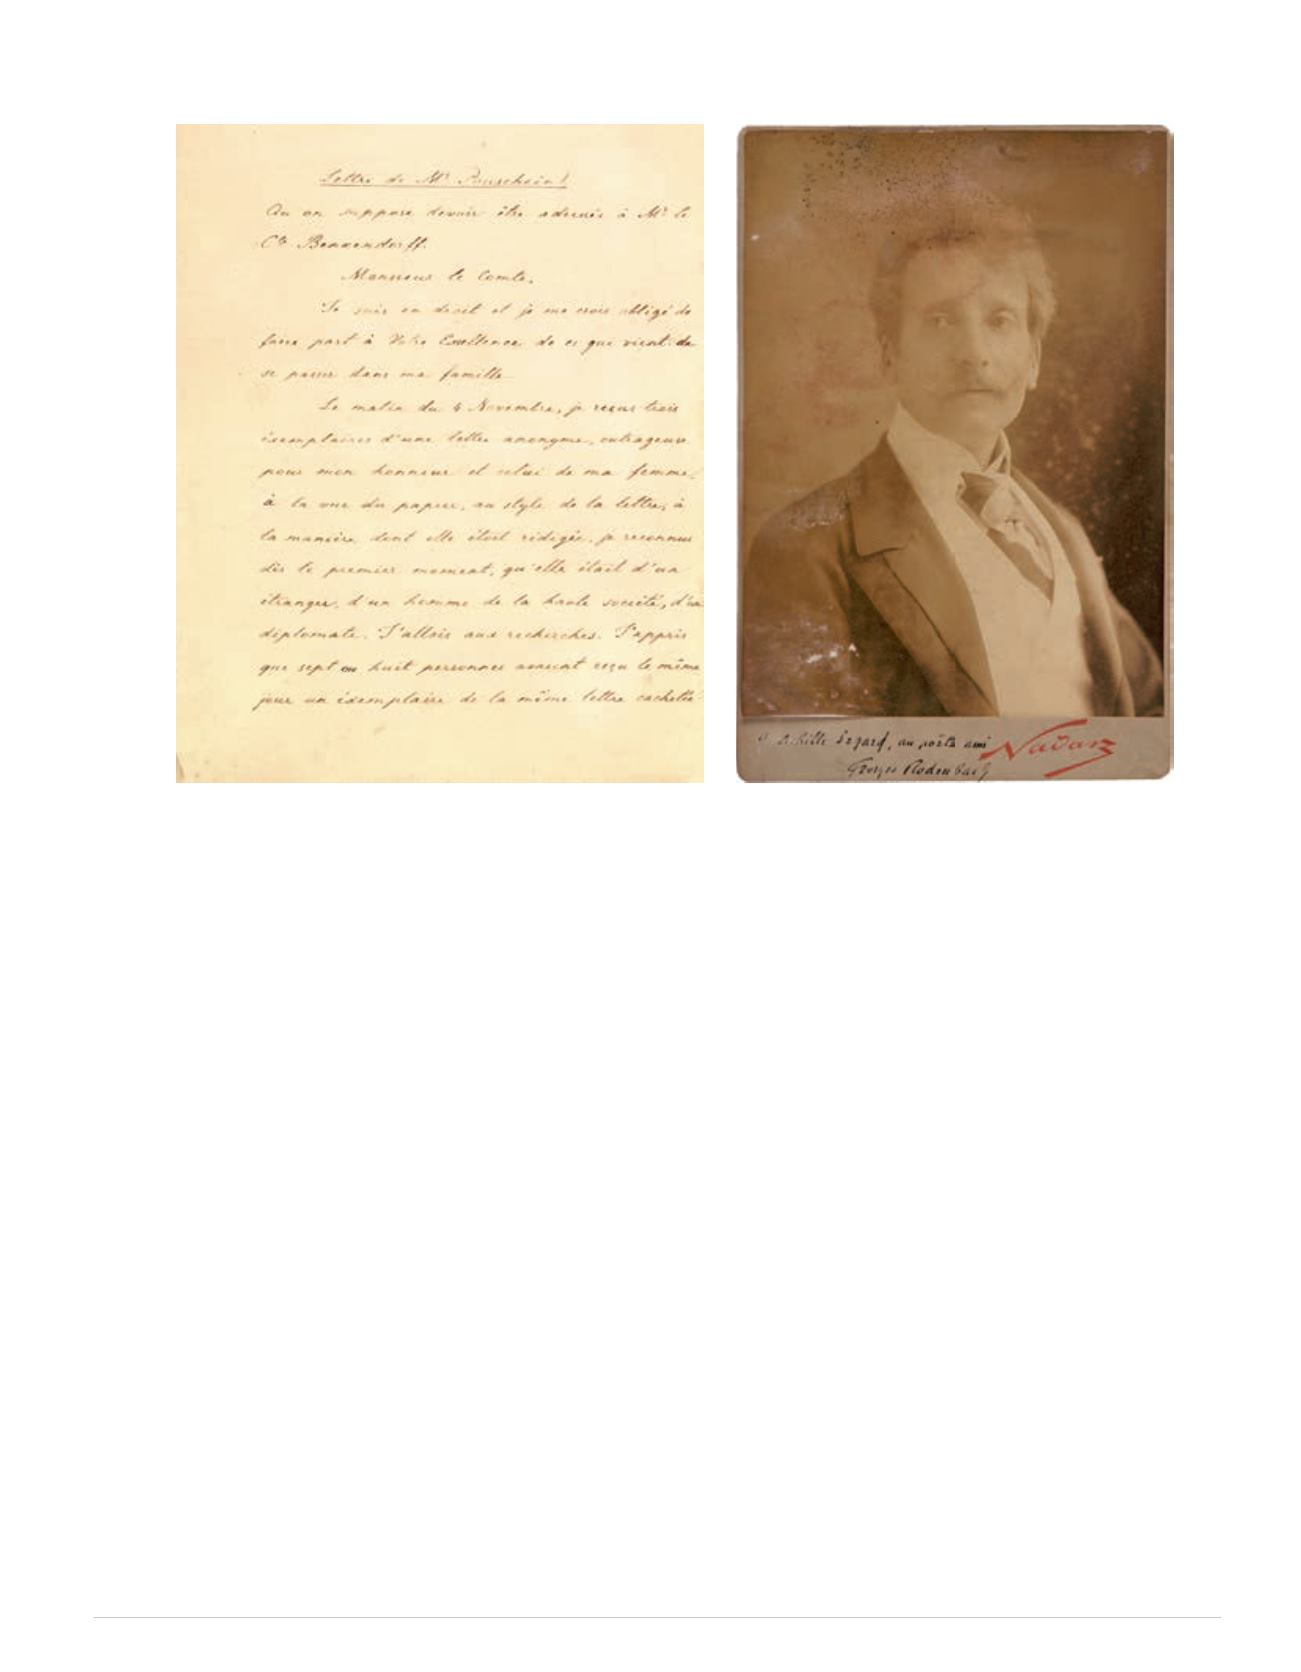 Lettre de Mr Pouschkin!
Qu'on suppose devoir être adressée à Mr le
Cte Benkendorff.
Monsieur le Comte,
Je suis en droit et je me crois obligé de
faire part à Votre Excellence de ce qui vient de
se passer dans ma famille
Le matin du 4 Novembre, je reçus trois
exemplaires d'une lettre anonyme, outrageuse
pour mon honneur et celui de ma femme,
à la vue du papier, au style de la lettre, à
la manière dont elle était rédigée, je reconnus
dès le premier moment, qu'elle était d'un
étranger, d'un homme de la haute société, d'un
diplomate. J'allois aux recherches. J'appris
que sept ou huit personnes avaient reçu le même
jour un exemplaire de la même lettre cachetée
à Achille Segard, au poète ami
Georges Rodenbach
Nadar